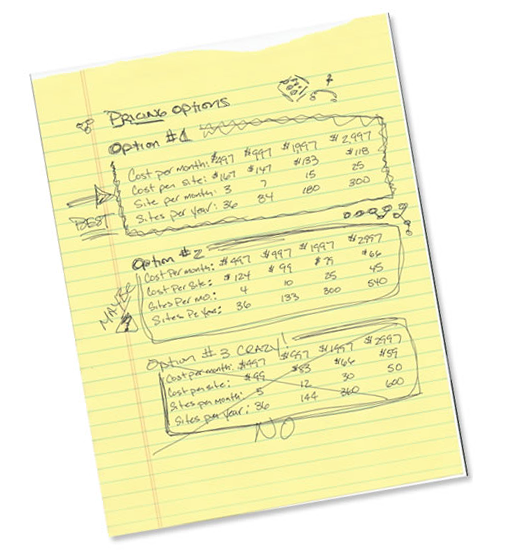 PRICING OPTIONS
Option #1
Cost per month: $497 $997 $1997 $2997
Cost per site: $167 $147 $133 $118
Site per month: 3 7 15 25
Sites per year: 36 84 180 300
BEST
Option #2
Cost Per month: $497 $997 $1997 $2997
Cost Per Site: $124 $99 $79 $66
Sites Per mo.: 4 10 25 45
Sites Per Year: 36 133 300 540
MAYBE
?
Option #3 CRAZY!
Cost per month: $497 $997 $1997 $2997
Cost per site: $99 $83 $66 $59
Sites per month: 5 12 30 50
Sites per year: 36 144 360 600
NO